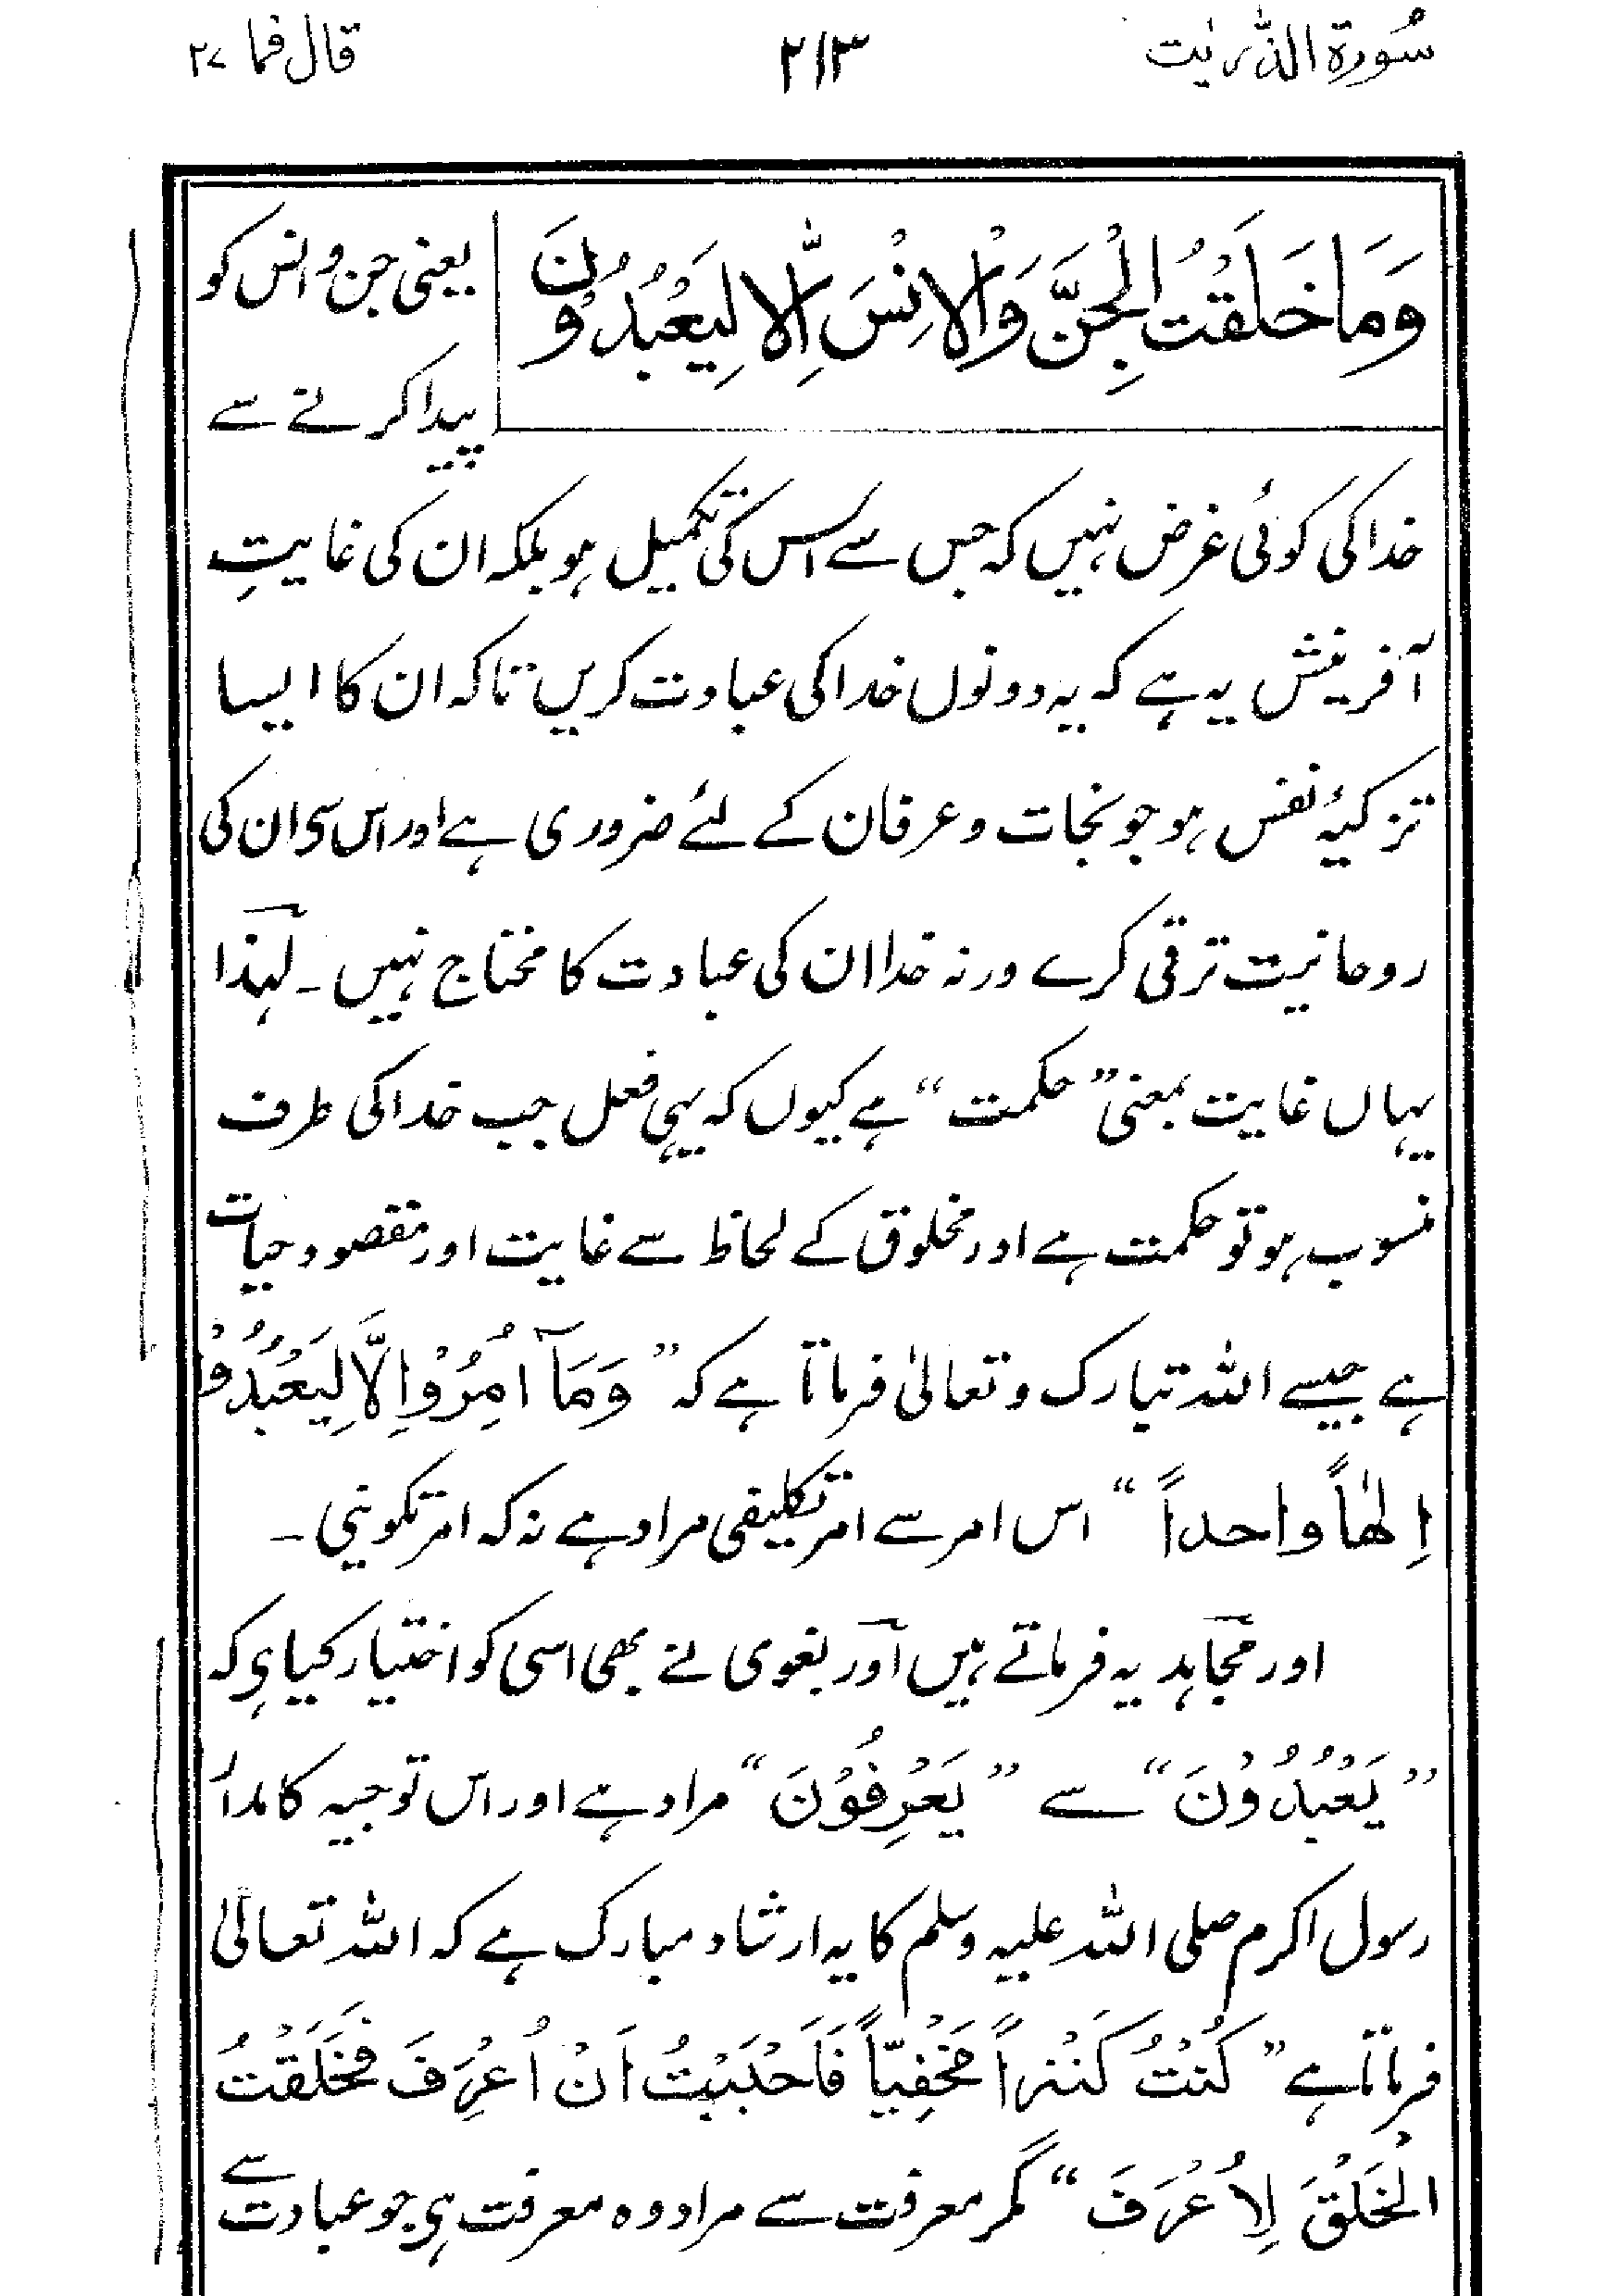 سُورۃ الذّٰریٰت ۲۱۳ قال فما ۲۷
وَمَا خَلَقْتُ الْجِنَّ وَالْاِنْسَ اِلَّا لِیَعْبُدُوْنَ
یعنی جن و انس کو
پیدا کرنے سے
خدا کی کوئی غرض نہیں کہ جس سے اس کی تکمیل ہو بلکہ ان کی غایتِ
آفرینش یہ ہے کہ یہ دونوں خدا کی عبادت کریں تاکہ ان کا ایسا
تزکیۂ نفس ہو جو نجات و عرفان کے لئے ضروری ہے اور اس سی ان کی
روحانیت ترقی کرے ورنہ خدا ان کی عبادت کا محتاج نہیں۔ لہٰذا
یہاں غایت بمعنی ”حکمت“ ہے کیوں کہ یہی فعل جب خدا کی طرف
منسوب ہو تو حکمت ہے اور مخلوق کے لحاظ سے غایت اور مقصود حیات
ہے جیسے اللہ تبارک و تعالیٰ فرماتا ہے کہ ”وَمَآ اُمِرُوْا اِلَّا لِیَعْبُدُوْا
اِلٰھاً واحداً“ اس امر سے امر تکلیفی مراد ہے نہ کہ امر تکوینی۔
اور مجاہد یہ فرماتے ہیں اور بغوی نے بھی اسی کو اختیار کیا ہی کہ
”یَعْبُدُوْنَ“ سے ”یَعْرِفُوْنَ“ مراد ہے اور اس توجیہ کا مدار
رسول اکرم صلی اللہ علیہ وسلم کا یہ ارشاد مبارک ہے کہ اللہ تعالیٰ
فرماتا ہے ”کُنْتُ کَنْزاً مَخْفِیّاً فَاَحْبَبْتُ اَنْ اُعْرَفَ فَخَلَقْتُ
الْخَلْقَ لِاُعْرَفَ“ مگر معرفت سے مراد وہ معرفت ہی جو عبادت سے